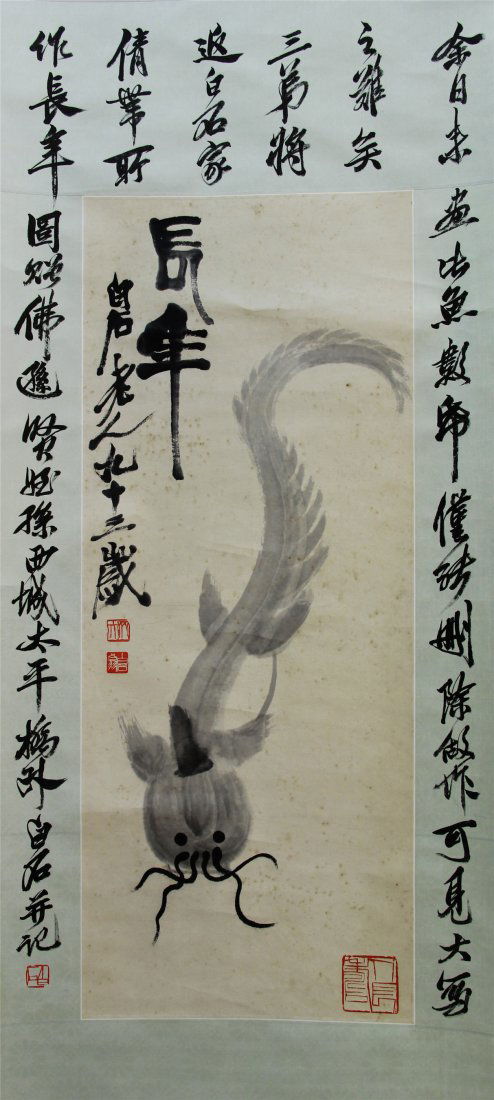 余日來畫此魚數帋僅能刪除做作可見大寫
之難矣
三弟將
返白石家
倩帶所
作長年圖贈佛遜賢姪孫西城太平橋外白石并記
長年
白石老人九十三歲